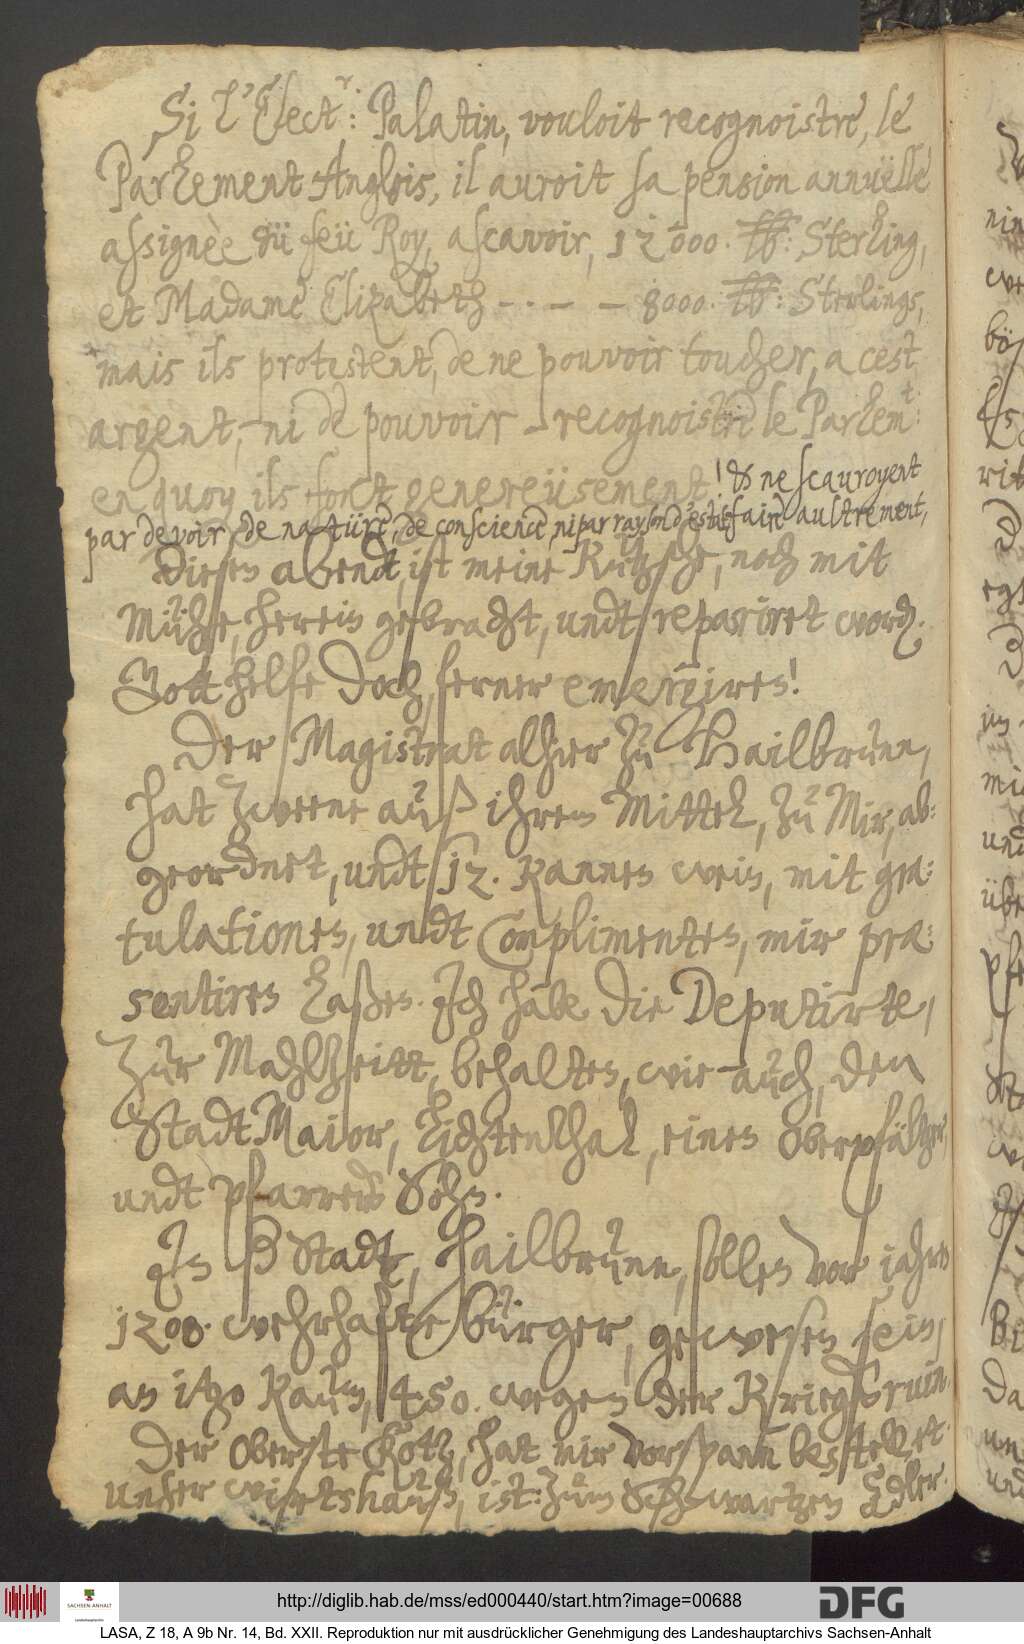 Si l'Elect.r: Palatin, vouloit recognoistre, le
Parlement Anglois, il auroit sa pension annuëlle
assignèe dü feü Roy, ascavoir, 12000. ℔: Sterling,
et Madame Elizabeth – . – – 8000. ℔: Sterlings,
mais ils protestent, de ne pouvoir toucher, a cest
argent, ni de pouvoir – recognoistre le Parlem.t:
en quoy ils font genereüsement! & ne scauroyent
par devoir, de natüre, de conscience, ni par rayson d'estat faire aultrement,
Diesen abendt, ist meine Kutzsche, noch mit
Mühe, herein gebracht, undt repariret word.
Gott helfe doch, ferner emergiren!
Der Magistrat alhier zu Hailbrunn,
hat zweene auß ihrem Mittel, zu Mir, ab:
geordnet, undt 12. Kannen wein, mit gra:
tulationen, undt Complimenten, mir præ:
sentiren laßen. Ich habe die Deputirte,
zur Mahlzeitt, behalten, wie auch, den
StadtMaior, Lichtenthal, einen Oberpfältzer,
undt pfarrers Sohn.
In d Stadt, Hailbrunn, sollen vor iahren
1200. wehrhafte bürger, gewesen sein,
an itzo kaum, 450. wegen der Kriegsruin.
Der Oberste Kötz, hat mir vorspann bestellet.
unser wirtshauß, ist: zum Schwartzen Adler.
http://diglib.hab.de/mss/ed000440/start.htm?image=00688
SACHSEN-ANHALT
DFG
LASA, Z 18, A 9b Nr. 14, Bd. XXII. Reproduktion nur mit ausdrücklicher Genehmigung des Landeshauptarchivs Sachsen-Anhalt